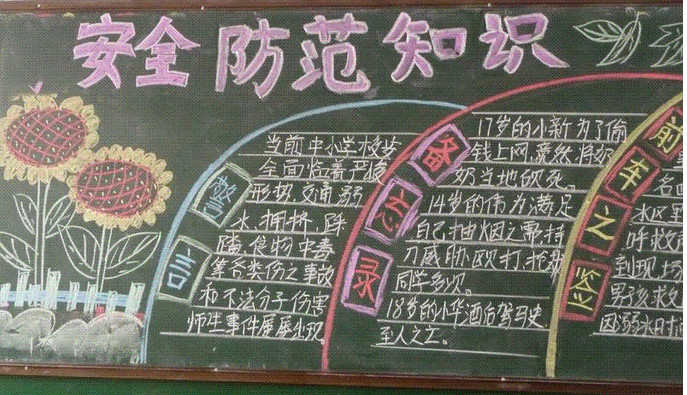 安全防范知识
警言
当前中小学校安
全面临着严峻
形势,交通、溺
水、拥挤、踩
踏、食物中毒
等各类伤亡事故
和不法分子伤害
师生事件屡屡出现
备忘录
17岁的小新为了偷
钱上网,竟然将奶
奶当地砍死。
14岁的伟为满足
自己抽烟之需,持
刀威胁、殴打、抢劫
同学多次。
18岁的小华酒后驾马史
至人之亡。
前车之鉴
名四
水区里
呼救
到现场
男孩救
因溺水时间